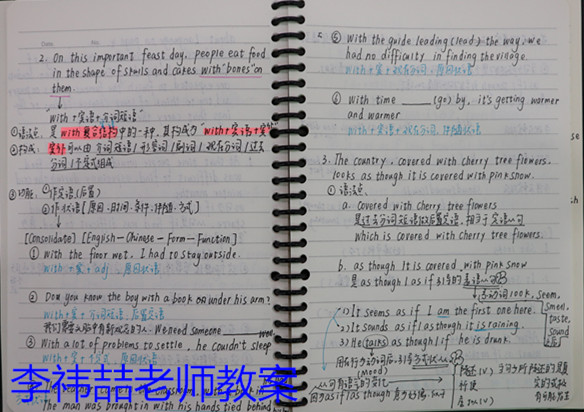 2. On this important feast day, people eat food
in the shape of skulls and cakes with "bones" on
them.
with+宾语+介词短语"
①语法点: 是with复合结构中的一种,其构成为"with+宾语+宾补"
②构成: 宾补可以由介词短语/形容词/副词/现在分词/过去
分词/不定式组成
③功能: ①作定语(后置)
②作状语[原因、时间、条件、伴随、方式]
[Consolidate] [English-Chinese-Form-Function]
① With the floor wet, I had to stay outside.
with+宾+adj. 原因状语
② Do you know the boy with a book under his arm?
with+宾+介词短语, 后置定语
We need someone
③ With a lot of problems to settle, he couldn't sleep
with+宾+不定式, 原因状语
The man was brought in with his hands tied behind
李祎喆老师教案
⑤ With the guide leading (lead) the way, we
had no difficulty in finding the village.
with+宾+现在分词, 原因状语
⑥ With time ____ (go) by, it's getting warmer
and warmer
with+宾+现在分词, 伴随状语
3. The country, covered with cherry tree flowers,
looks as though it is covered with pink snow.
① 语法点、
a. covered with cherry tree flowers
是过去分词短语做后置定语, 相当于定语从句
which is covered with cherry tree flowers.
b. as though it is covered with pink snow
是as though / as if 引导的表语从句
系动词look, seem,
smell,
taste,
sound
(1) It seems as if I am the first one here.
(2) It sounds as if / as though it is raining.
(3) He talks as though / if he is drunk.
用在行为动词后, 引导方式状语从句
(mood)